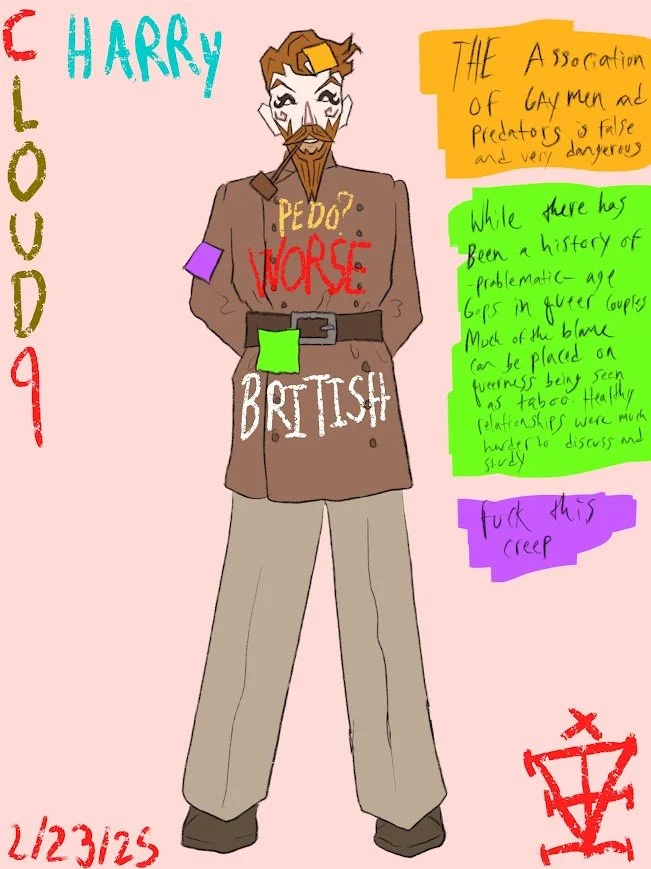 CLOUD 9
HARRY
THE Association
OF GAY men and
Predators is false
and very dangerous
PEDO?
WORSE
BRITISH
While there has
Been a history of
-problematic- age
Gaps in queer couples
Much of the blame
can be placed on
queerness being seen
as taboo. Healthy
relationships were much
harder to discuss and
study
fuck this
creep
2/23/25